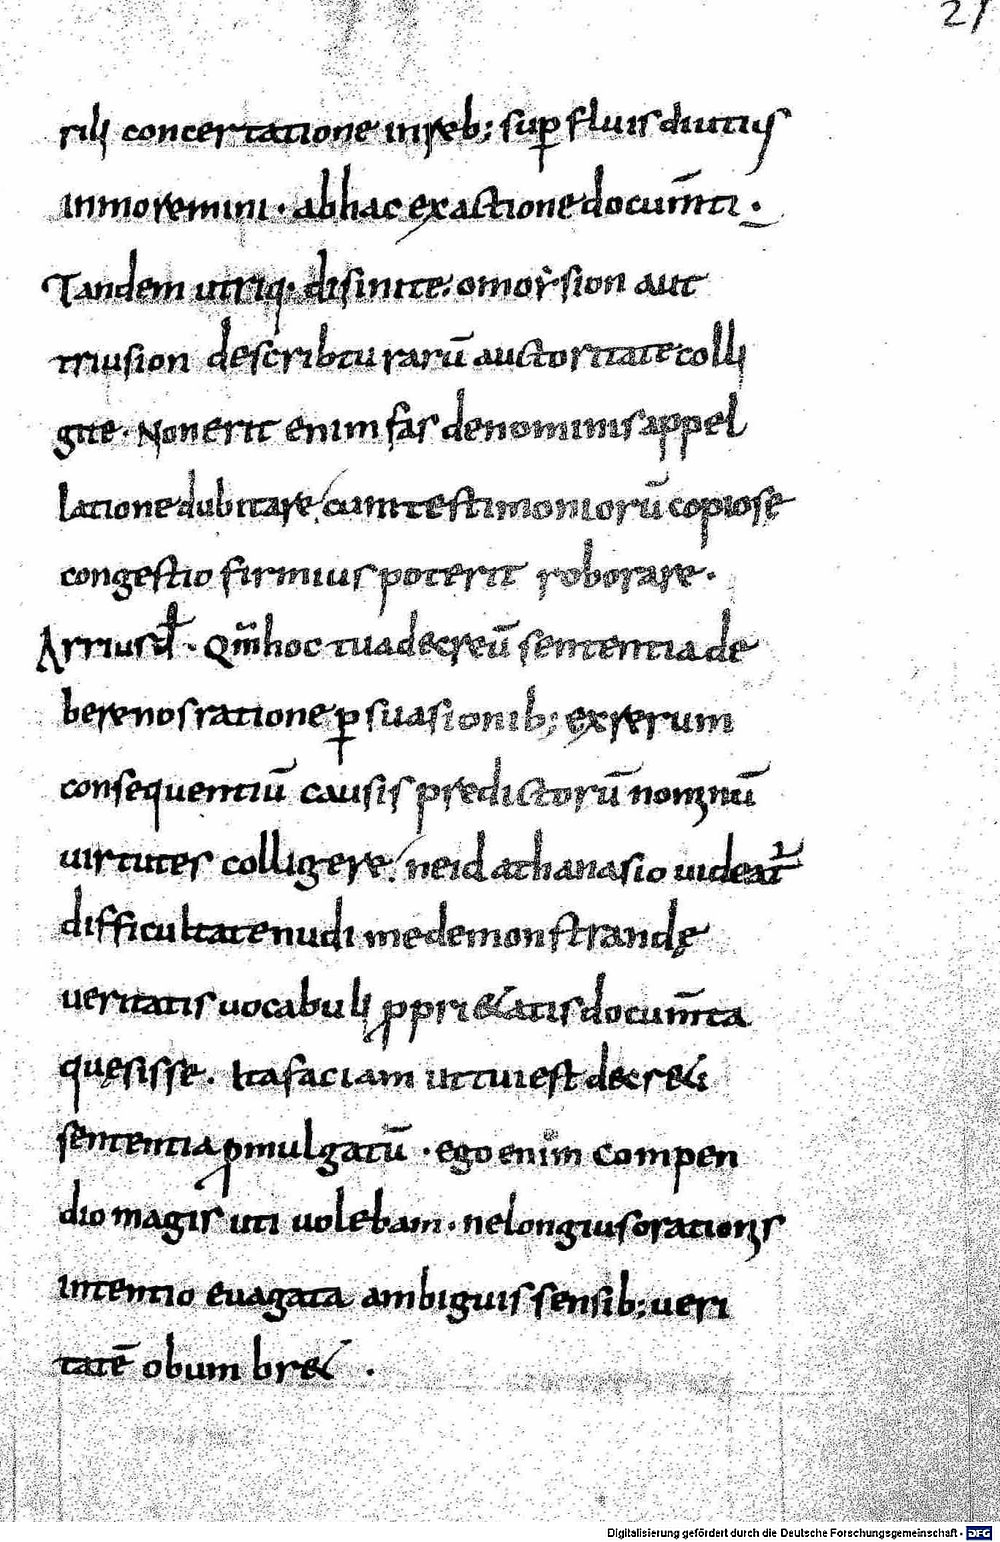 21
rili concertatione inreb; sup fluis diutius
inmoremini · ab hac exactione docum̄ti ·
Tandem utriq· disinite: omoysion aut
triusion describturarū auctoritate colli
gite · Non erit enim fas de nominis appel
latione dubitare, cum testimoniorū copiose
congestio firmius poterit roborare ·
Arrius d̄ · Qm̄ hoc tua decreū sententia de
bere nos ratione p suasionib; ex rerum
consequentiū causis predictorū nominū
uirtutes colligere, ne id athanasio uideat̄
difficultate nudi me demonstrandę
ueritatis uocabuli pprietatis docum̄ta
quęsisse. Ita faciam ut tui est decreti
sententia pmulgatū · ego enim compen
dio magis uti uolebam · ne longius orationis
intentio euagata ambiguis sensib; ueri
tatē obumbret ·
Digitalisierung gefördert durch die Deutsche Forschungsgemeinschaft - DFG